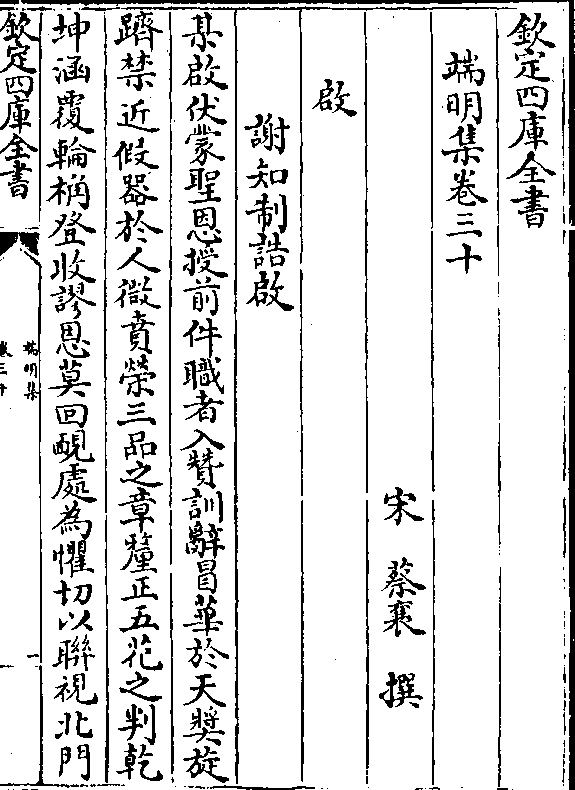 欽定四庫全書
端明集卷三十
宋 蔡襄 撰
啟
謝知制誥啟
某啟伏蒙聖恩授前件職者入贊訓辭冒華於天奬旋
躋禁近假器於人微賁榮三品之章釐正五花之判乾
坤涵覆輪桷登收謬恩莫回靦處為懼切以聯視北門
欽定四庫全書
端明集
卷三十
一